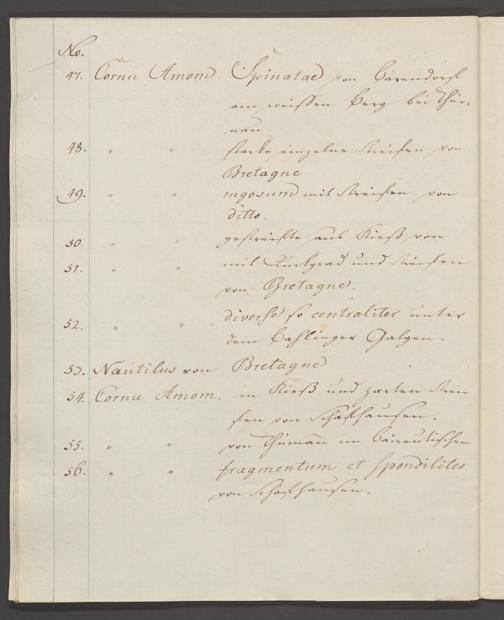 No.
47. Cornu Amom. Spinatae von Bärendorf
am weissen Berg bei Thür-
nau
48. " " starke einzelne Streifen von
Bretagne
49. " " rugosum mit Streifen von
ditto.
50 " " gestreifte aus Kieß von
51. " " mit Rückgrad und Streifen
von Bretagne.
52. " " diverse so centraliter unter
dem Bahlinger Galgen.
53. Nautilus von Bretagne
54. Cornu Amom. in Kieß und zarten Strei-
fen von Schafhausen.
55. " " von Thurnau im Baireutischen
56. " " fragmentum et Spondilites
von Schafhausen.